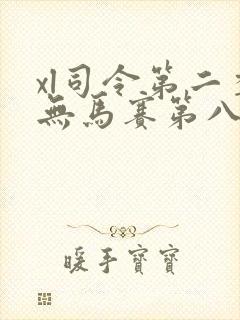 xl司令第二季
無馬賽第八
暖手寶寶